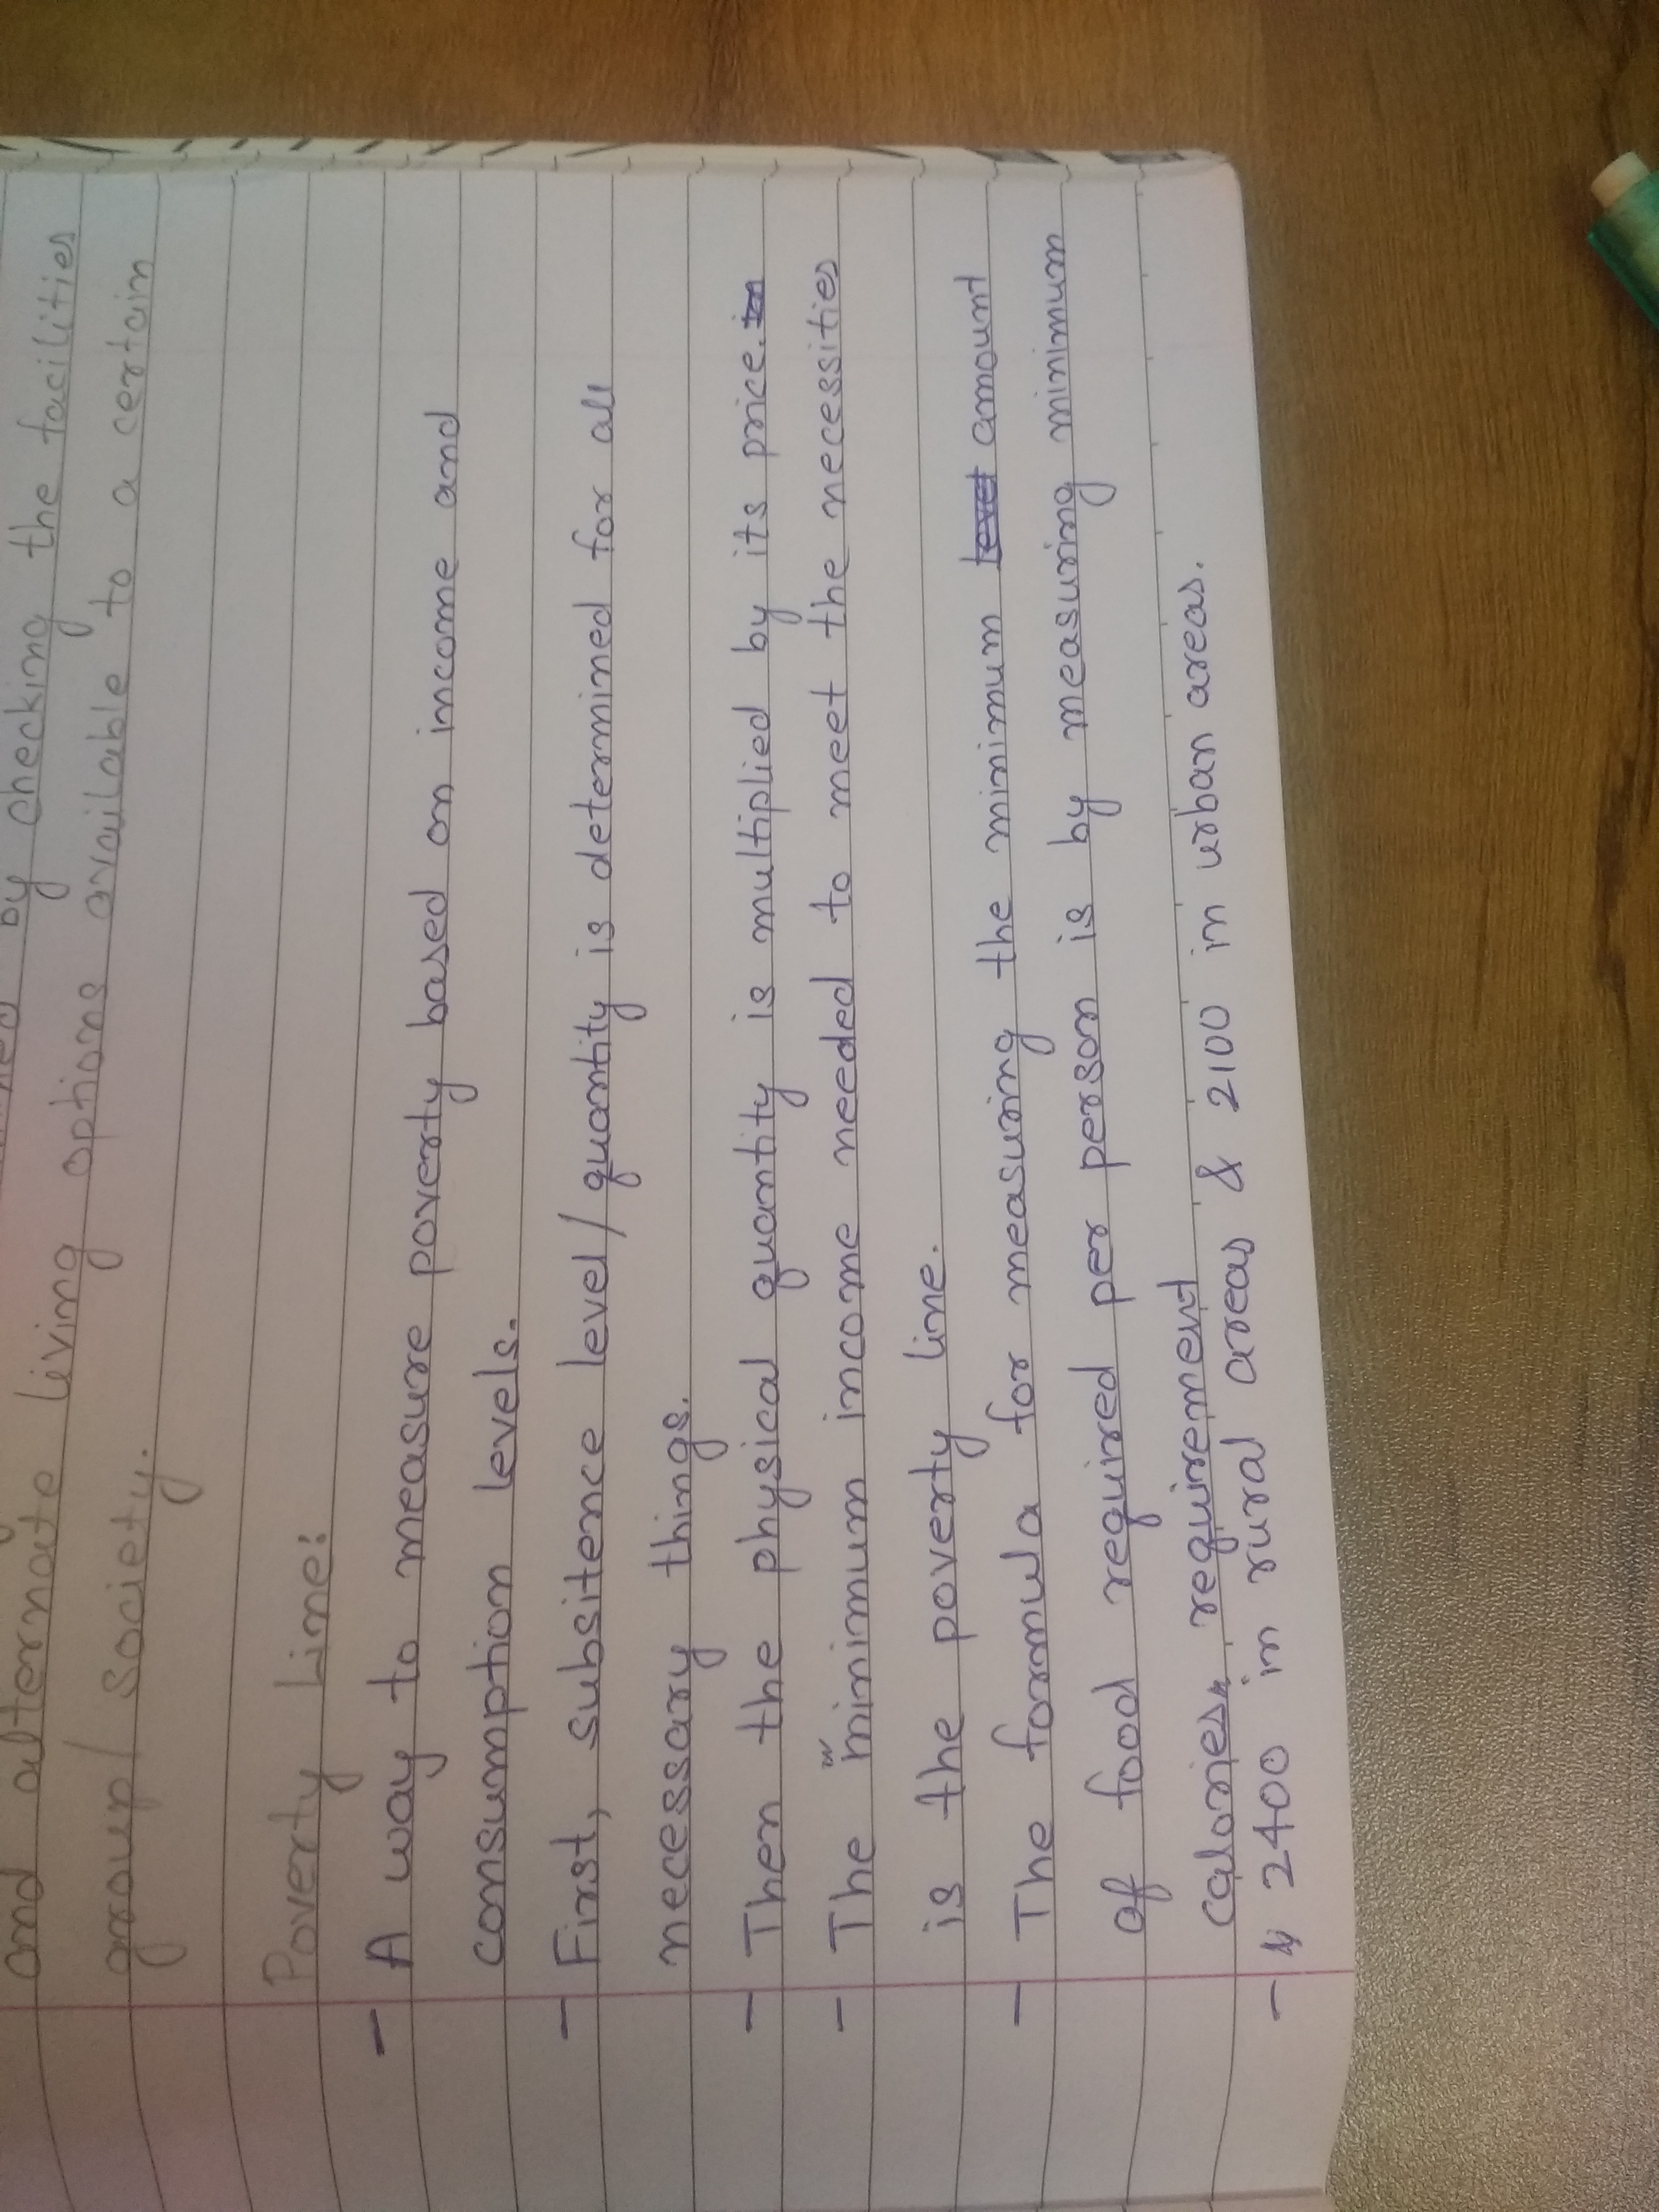 by checking the facilities
and alternate living options available to a certain
group/ society.
Poverty Line:
- A way to measure poverty based on income and
consumption levels.
- First, subsitence level/ quantity is determined for all
necessary things.
- Then the physical quantity is multiplied by its price.
- The minimum income needed to meet the necessities
is the poverty line.
- The formula for measuring the minimum level amount
of food required per person is by measuring minimum
calories requirement
- 2400 in rural areas & 2100 in urban areas.